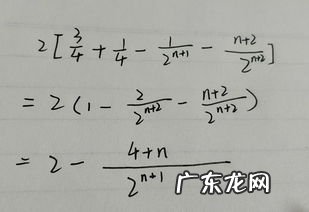 2[3/4 + 1/4 - 1/2^{n+1} - (n+2)/2^{n+2}]
= 2(1 - 2/2^{n+2} - (n+2)/2^{n+2})
= 2 - (4+n)/2^{n+1}
广东龙网